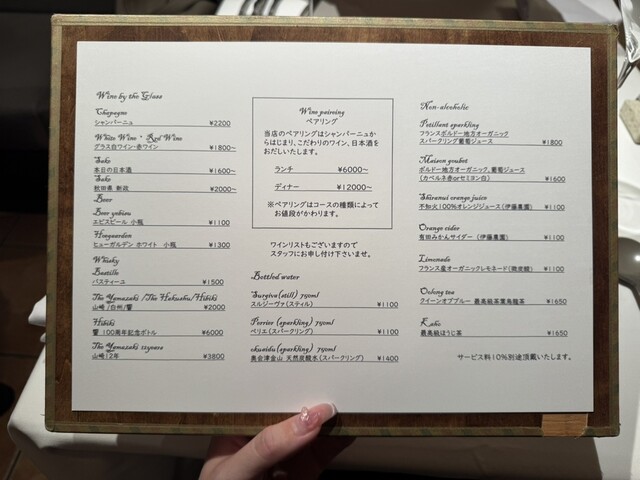 Wine by the Glass
Chapagne
シャンパーニュ ¥2200
White Wine・Red Wine
グラス白ワイン・赤ワイン ¥1800~
Sake
本日の日本酒 ¥1600~
Sake
秋田県 新政 ¥2000~
Beer
Beer yebisu
エビスビール 小瓶 ¥1100
Hougaarden
ヒューガルデン ホワイト 小瓶 ¥1300
Whisky
Bastille
バスティーユ ¥1500
The Yamazaki /The Hakushu/Hibiki
山崎/白州/響 ¥2000
Hibiki
響 100周年記念ボトル ¥6000
The Yamazaki 12years
山崎12年 ¥3800
Wine pairering
ペアリング
当店のペアリングはシャンパーニュか
らはじまり、こだわりのワイン、日本酒を
おだしいたします。
ランチ ¥6000~
ディナー ¥12000~
※ペアリングはコースの種類によって
お値段がかわります。
ワインリストもございますので
スタッフにお申し付け下さいませ。
Bottled water
Surgiva(still) 750ml
スルジーヴァ(スティル) ¥1100
Perrier (sparkling) 750ml
ペリエ(スパークリング) ¥1100
okuaidu(sparkling) 750ml
奥会津金山 天然炭酸水(スパークリング) ¥1400
Non-alcoholic
Petillant sparkling
フランスボルドー地方オーガニック
スパークリング葡萄ジュース ¥1800
Maison goubet
ボルドー地方オーガニック、葡萄ジュース
(カベルネ赤orセミヨン白) ¥1600
Shiranui orange juice
不知火100%オレンジジュース(伊藤農園) ¥1100
Orange cider
有田みかんサイダー (伊藤農園) ¥1100
Limonade
フランス産オーガニックレモネード(微炭酸) ¥1100
Oolong tea
クイーンオブブルー 最高級茶葉烏龍茶 ¥1650
Kaho
最高級ほうじ茶 ¥1650
サービス料10%別途頂戴いたします。